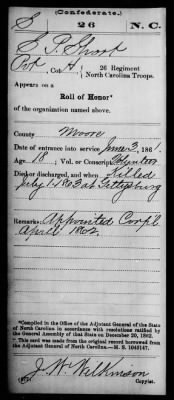 (Confederate.)
S 26 N. C.
Pvt, Co. H, 26 Regiment
North Carolina Troops.
Appears on a
Roll of Honor*
of the organization named above.
County Moore
Date of entrance into service June 3, 1861.
Age 18; Vol. or Conscript Volunteer
Died or discharged, and when Killed
July 1-1863 at Gettysburg
Remarks: Appointed Corp'l
April 1862
*Compiled in the Office of the Adjutant General of the State
of North Carolina in accordance with resolutions ratified by
the General Assembly of that State on December 20, 1862.
This card was made from the original record borrowed from
the Adjutant General of North Carolina.—M. S. 1043147.
J. W. Wilkinson
Copyist.